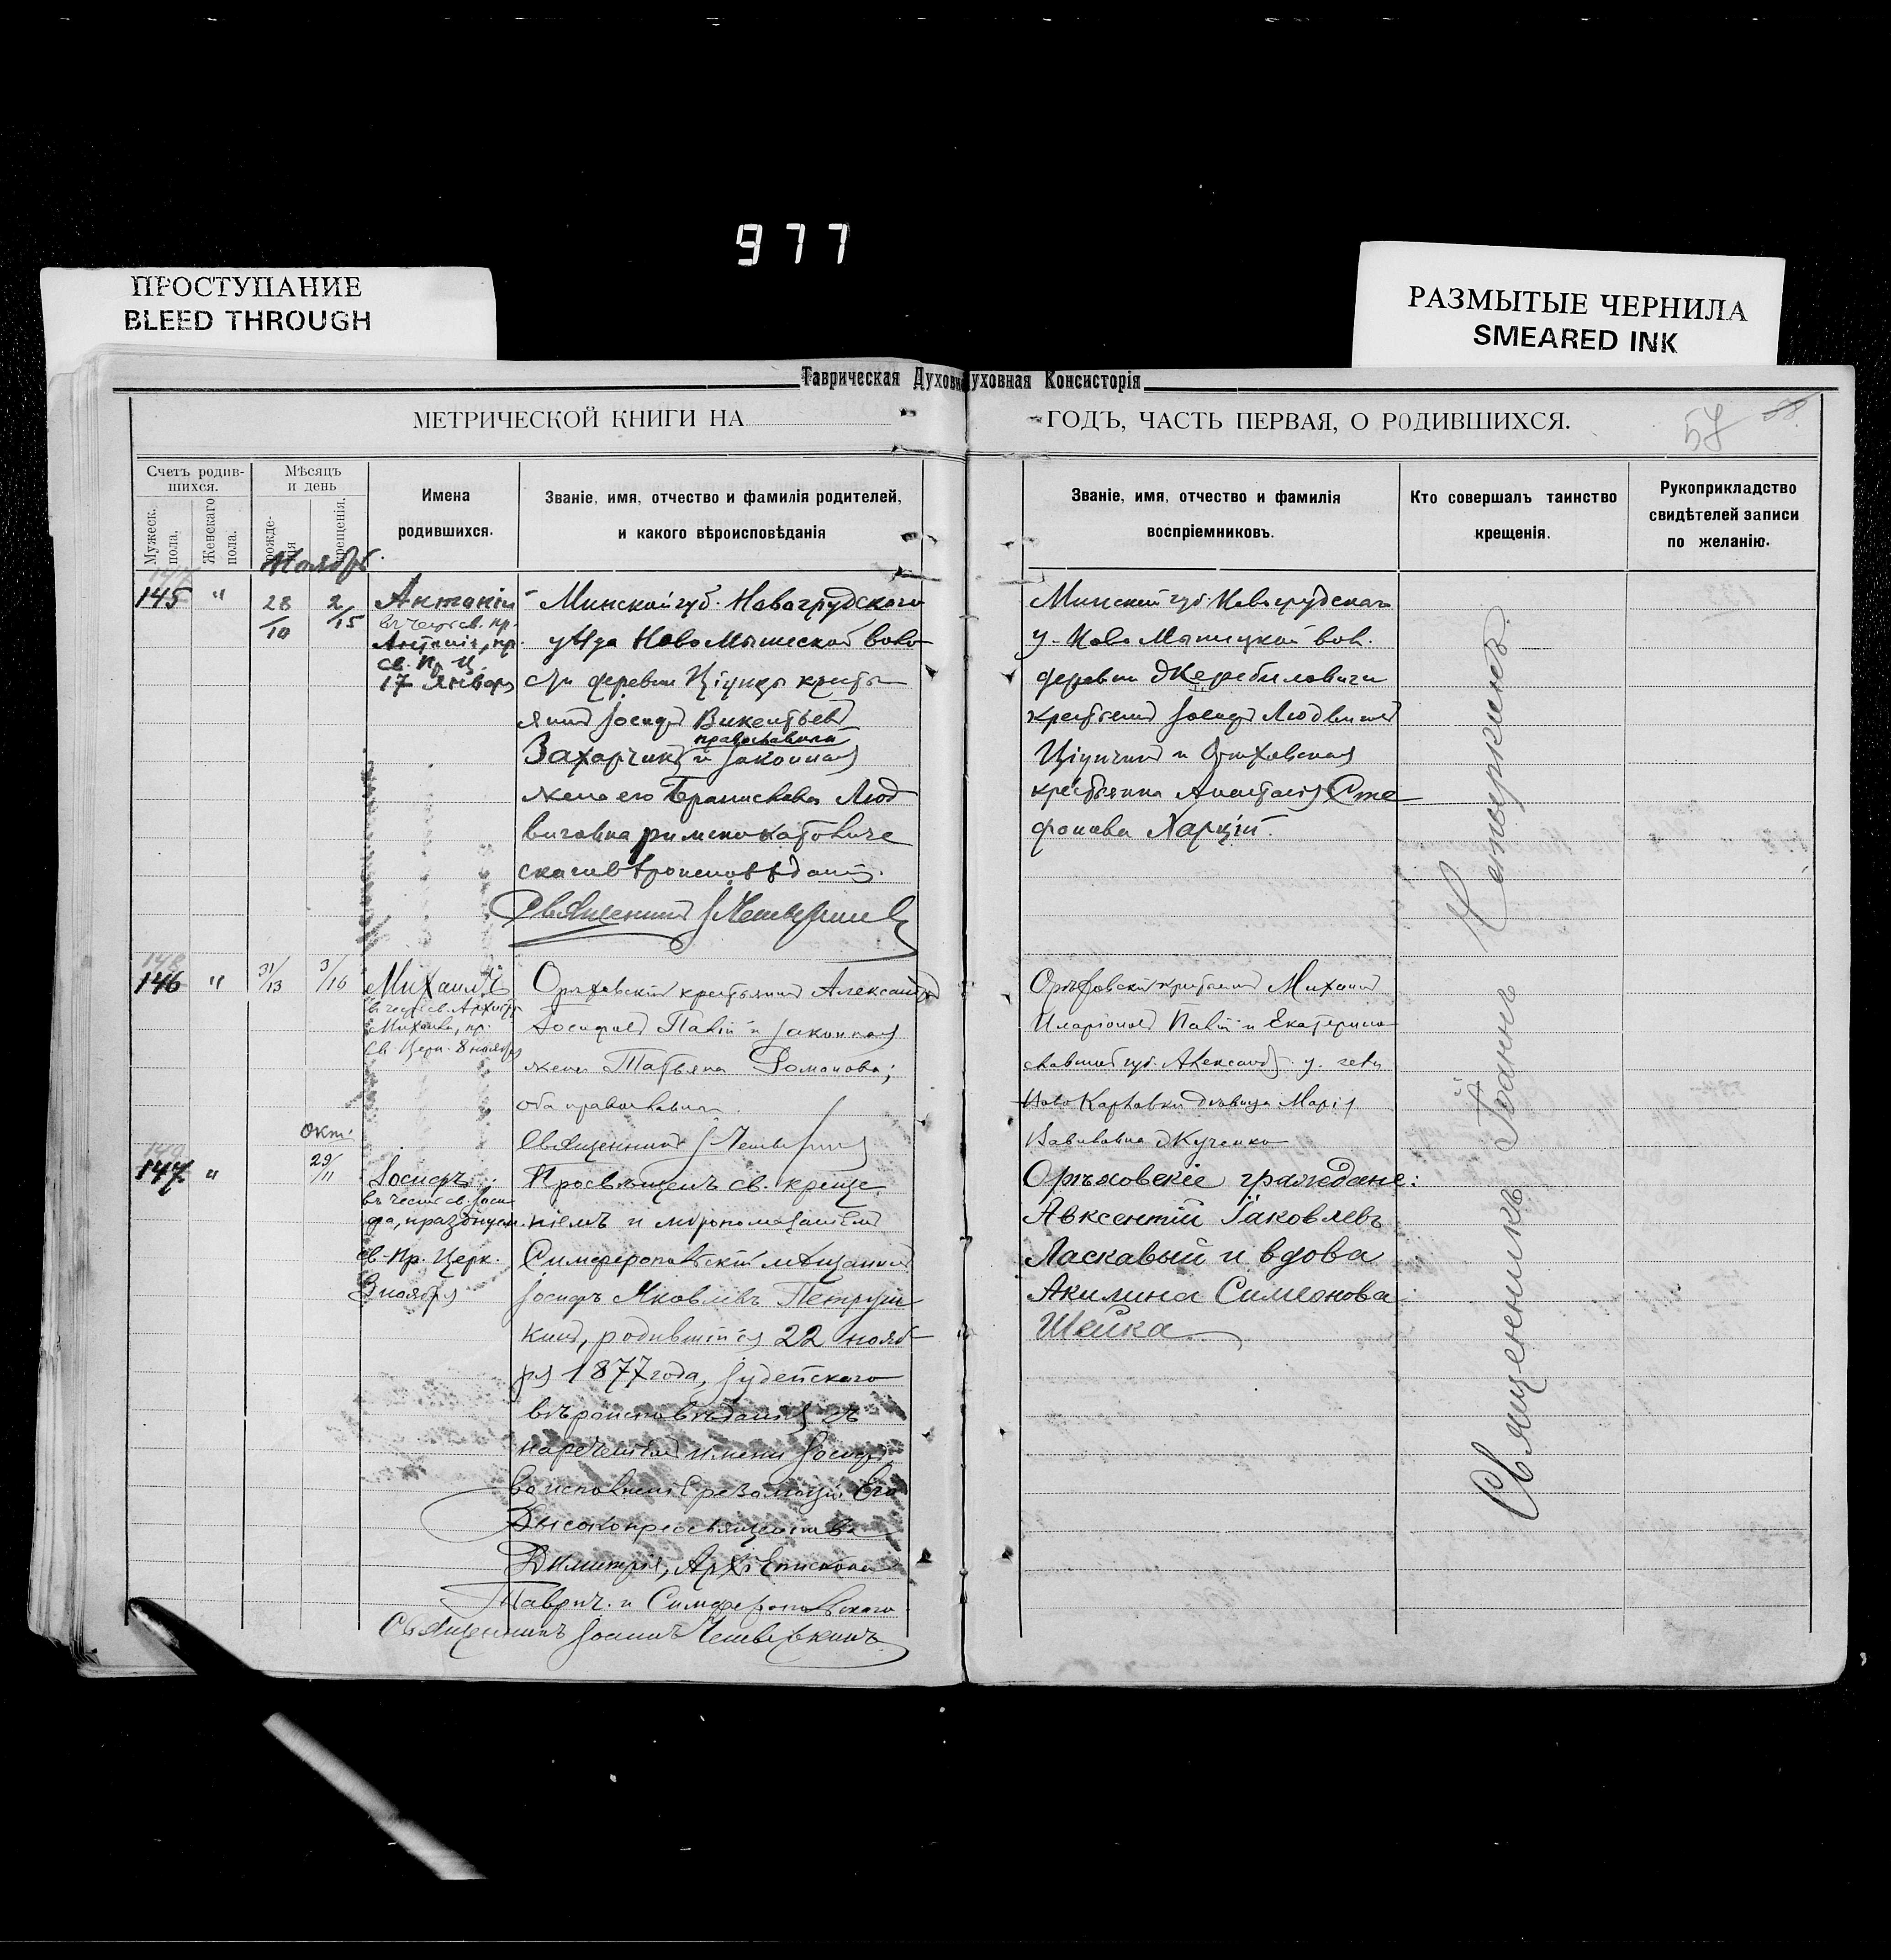 977
ПРОСТУПАНИЕ
BLEED THROUGH
РАЗМЫТЫЕ ЧЕРНИЛА
SMEARED INK
Таврическая Духовн
уховная Консисторія
МЕТРИЧЕСКОЙ КНИГИ НА
ГОДЪ, ЧАСТЬ ПЕРВАЯ, О РОДИВШИХСЯ.
57 58
Счетъ родив-
шихся.
Мужеск. пола.
Женскаго пола.
Мѣсяцъ
и день
рожде-
нія
крещенія.
Имена
родившихся.
Званіе, имя, отчество и фамилія родителей,
и какого вѣроисповѣданія
Званіе, имя, отчество и фамилія
воспріемниковъ.
Кто совершалъ таинство
крещенія.
Рукоприкладство
свидѣтелей записи
по желанію.
Ноябрь.
145 " 28/10 2/15
Антоній
въ честь св. пр.
Антонія, пр.
св. Пр. Ц.
17 Января
Минской губ. Новогрудского
уѣзда Ново Мышеской воло
сти деревни Ціунцы кресть
янинъ Іосифъ Викентьевъ
православный
Захарчикъ и законная
жена его Брониславa Люд
виговна римско католиче
скаго вѣроисповѣданія.
Священникъ І Четверкинъ
Минской губ. Новогрудскаго
у. Ново Мышицкой вол.
деревни Жеребиловичи
крестьянинъ Іосифъ Людвиговъ
и Орѣховская
крестьянка Анастасія Сте
фанова Харцій.
146 " 31/13 3/16
Михаилъ
въ честь св. Архистр.
Михаила, пр.
св. Церк. 8 ноября
Орѣховскій крестьянинъ Александръ
Іосифовъ Палій и законная
жена Татьяна Романова;
оба православные.
Священникъ І Четверкинъ
Орѣховскій крестьянинъ Михаилъ
Иларіоновъ Палій и Екатерино
славской губ. Александр. у. села
Ново Карловки дѣвица Марія
Вавиловна Кученко
Окт.
147 " 29/11
Іосифъ;
въ честь св. Іоси
фа, празднуем.
св. Пр. Церк.
3 ноября
Просвѣщенъ св. креще
ніемъ и мѵропомазаніемъ
Симферопольскій мѣщанинъ
Іосифъ Яковлевъ Петруш
кинъ, родившійся 22 нояб
ря 1877 года, Іудейского
вѣроисповѣданія съ
наречениемъ имени Іосифъ,
во исполненіе резолюціи Его
Высокопреосвященства
Димитрія, Архіепископа
Таврич. и Симферопольскаго
Священникъ Іоаннъ Четверкинъ
Орѣховскіе граждане:
Авксентій Іаковлевъ
Ласкавый и вдова
Акилина Симеонова
Шейка
Священникъ Іоаннъ Четверкинъ.